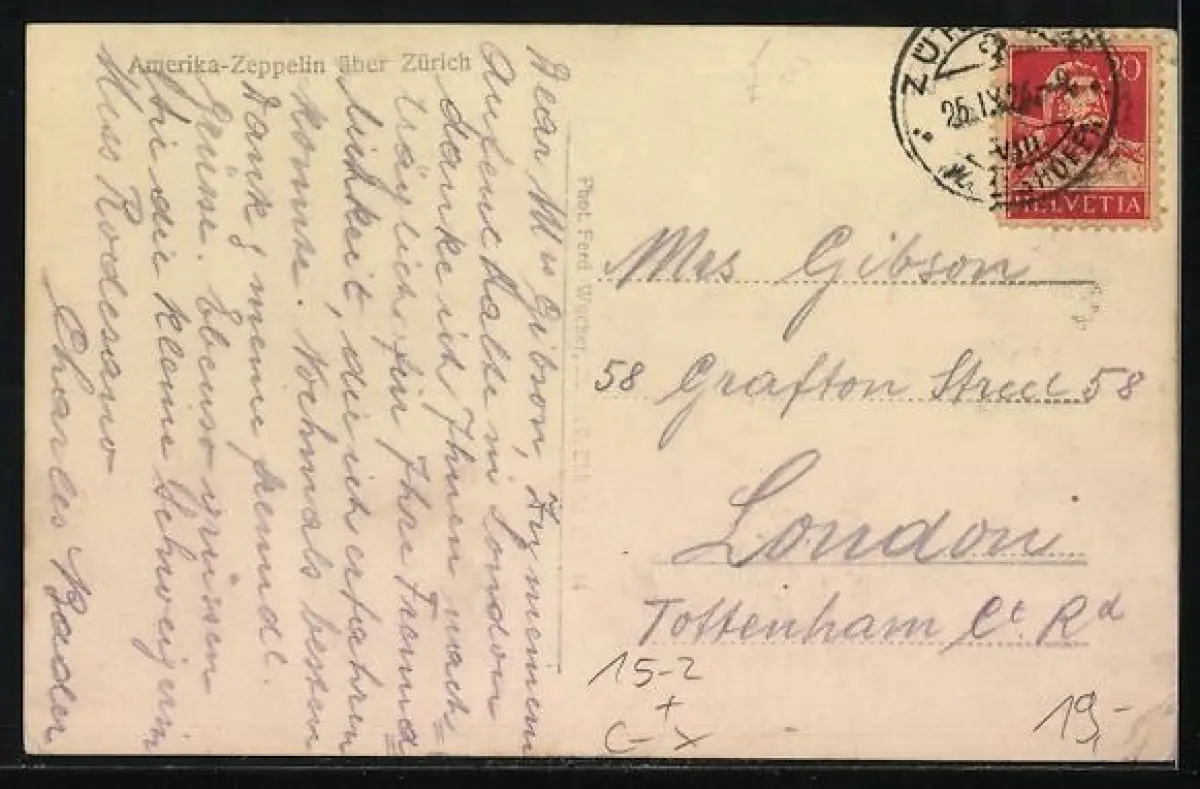 Amerika-Zeppelin über Zürich
Dear Mrs Gibson, Zu meinem
Aufenthalte in London
danke ich Ihnen nach=
träglich für Ihre Freund=
lichkeit, die ich erfahren
konnte. Nochmals besten
Dank & meine freundl.
Grüsse. Ebenso grüssen
Sie die kleine Schweizerin
Miss Rodesano
Charles Bader
Phot. Ferd.
ZÜR
25.IX.24
VIII
HELVETIA
Mrs Gibson
58 Grafton Street 58
London
Tottenham Ct Rd
15-2
+
C-X
19,-